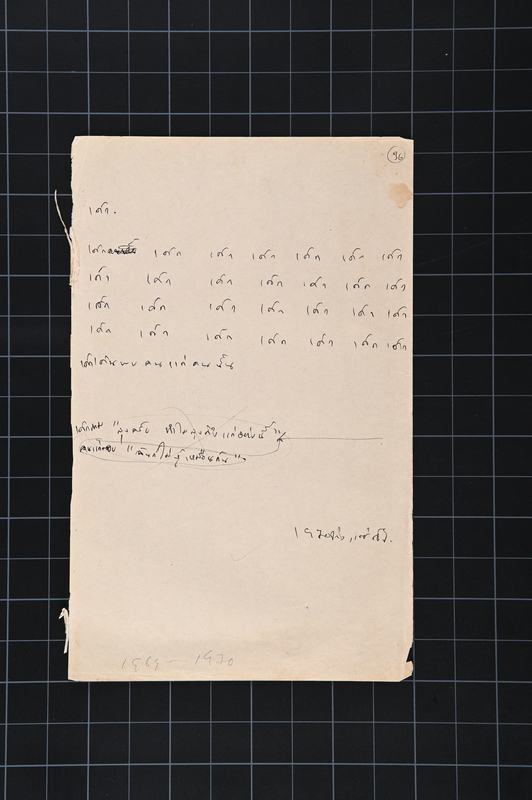 96
เด็ก.
เด็ก เด็ก เด็ก เด็ก เด็ก เด็ก เด็ก
เด็ก เด็ก เด็ก เด็ก เด็ก เด็ก เด็ก
เด็ก เด็ก เด็ก เด็ก เด็ก เด็ก เด็ก
เด็ก เด็ก เด็ก เด็ก เด็ก เด็ก เด็ก
เด็กเดินพบ คน แก่ คน นั้น
เด็กถาม "ลุงครับ ทำไมลุงถึงแก่อย่างนี้"
คนแก่ตอบ "ฉันก็ไม่รู้เหมือนกัน"
จ่าง แซ่ตั้ง.
1969 – 1970